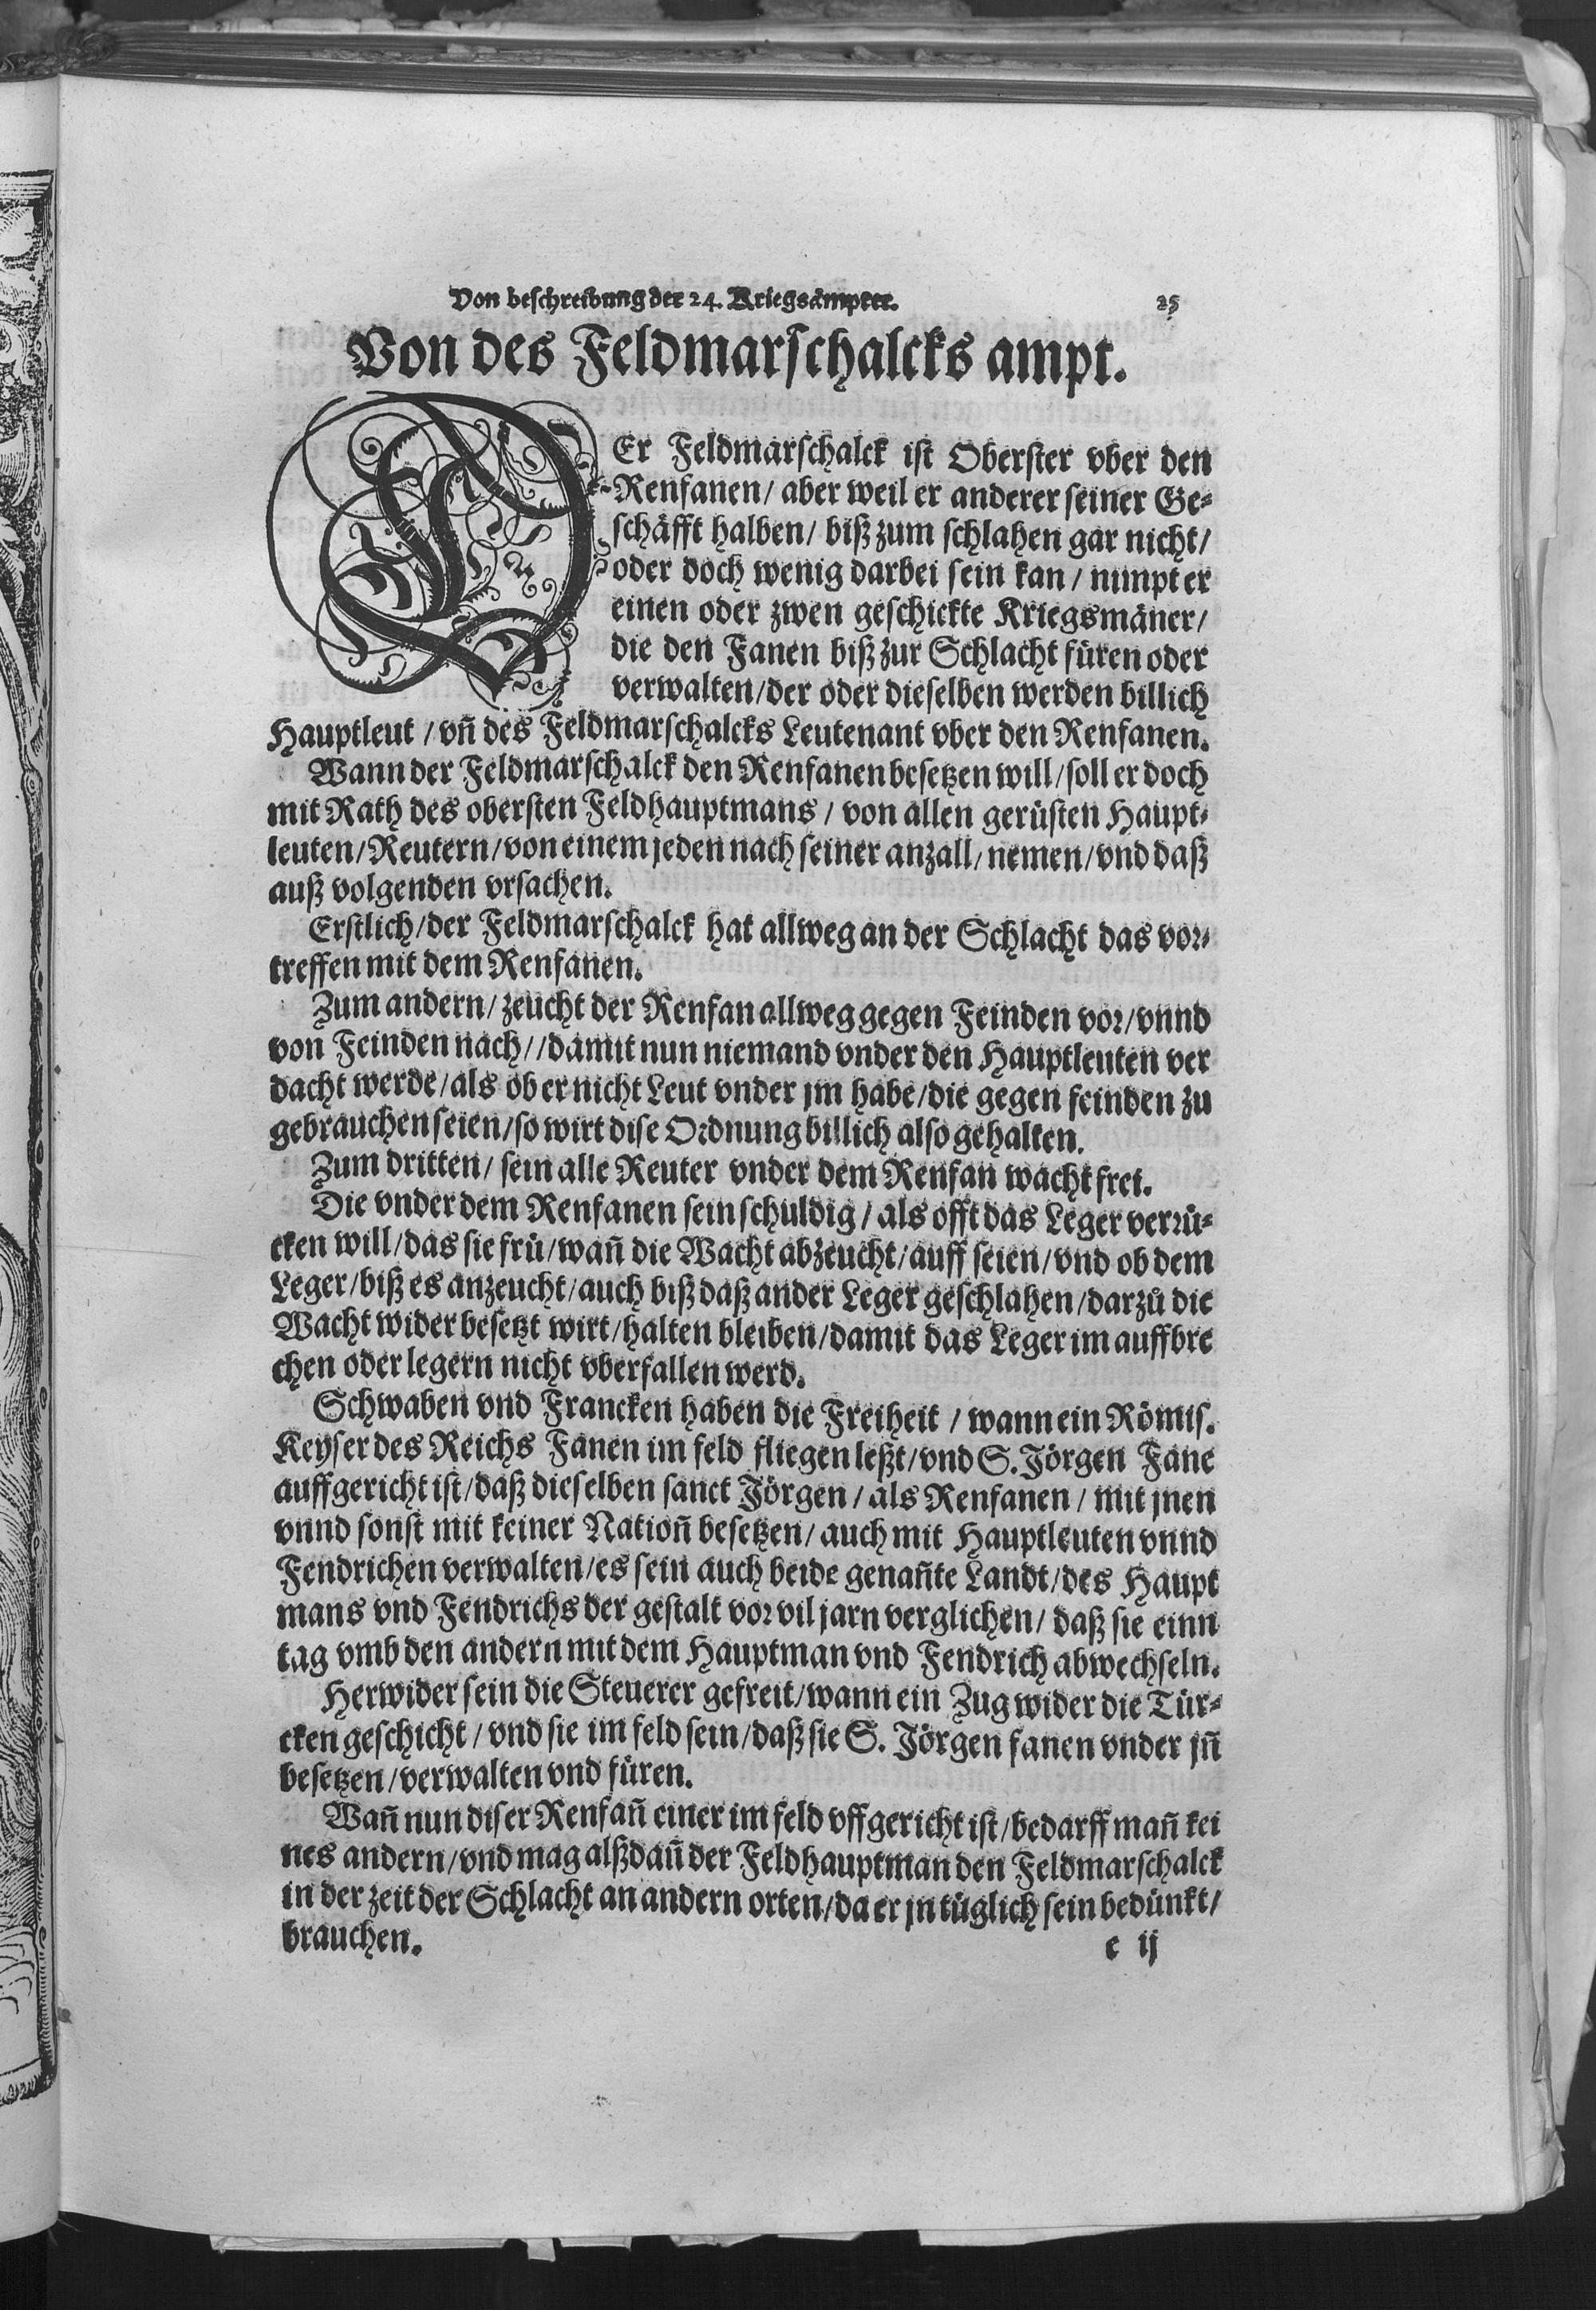 Von beschreibung der 24. Kriegsämpter. 25
Von des Feldmarschalcks ampt.
DEr Feldmarschalck ist Oberster vber den
Renfanen/ aber weil er anderer seiner Ge-
schäfft halben/ biß zum schlahen gar nicht/
oder doch wenig darbei sein kan/ nimpt er
einen oder zwen geschickte Kriegsmäner/
die den Fanen biß zur Schlacht füren oder
verwalten/der oder dieselben werden billich
Hauptleut / vñ des Feldmarschalcks Leutenant vber den Renfanen.
Wann der Feldmarschalck den Renfanen besetzen will/soll er doch
mit Rath des obersten Feldhauptmans / von allen gerüsten Haupt-
leuten/Reutern/von einem jeden nach seiner anzall/nemen/vnd daß
auß volgenden vrsachen.
Erstlich/der Feldmarschalck hat allweg an der Schlacht das vor-
treffen mit dem Renfanen.
Zum andern/ zeucht der Renfan allweg gegen Feinden vor/vnnd
von Feinden nach//damit nun niemand vnder den Hauptleuten ver
dacht werde/als ob er nicht Leut vnder jm habe/die gegen feinden zu
gebrauchen seien/so wirt dise Ordnung billich also gehalten.
Zum dritten/ sein alle Reuter vnder dem Renfan wacht frei.
Die vnder dem Renfanen sein schuldig / als offt das Leger verrü-
cken will/das sie frü/wañ die Wacht abzeucht/auff seien/vnd ob dem
Leger/biß es anzeucht/auch biß daß ander Leger geschlahen/darzů die
Wacht wider besetzt wirt/halten bleiben/damit das Leger im auffbre
chen oder legern nicht vberfallen werd.
Schwaben vnd Francken haben die Freiheit / wann ein Römis.
Keyser des Reichs Fanen im feld fliegen leßt/vnd S. Jörgen Fane
auffgericht ist/daß dieselben sanct Jörgen / als Renfanen / mit jnen
vnnd sonst mit keiner Nationñ besetzen/ auch mit Hauptleuten vnnd
Fendrichen verwalten/es sein auch beide genañte Landt/des Haupt
mans vnd Fendrichs der gestalt vor vil jarn verglichen/ daß sie einn
tag vmb den andern mit dem Hauptman vnd Fendrich abwechseln.
Herwider sein die Steuerer gefreit/wann ein Zug wider die Tür-
cken geschicht/ vnd sie im feld sein/daß sie S. Jörgen fanen vnder jñ
besetzen/verwalten vnd füren.
Wañ nun diser Renfañ einer im feld vffgericht ist/bedarff mañ kei
nes andern/vnd mag alßdañ der Feldhauptman den Feldmarschalck
in der zeit der Schlacht an andern orten/da er jn tüglich sein bedünkt/
brauchen.
e ij